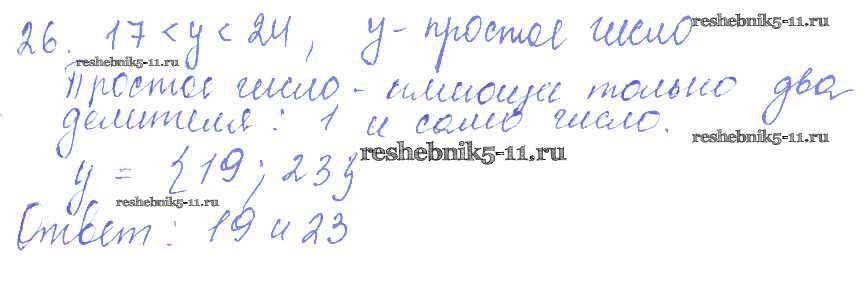 26. 17 < y < 24, y - простое число
reshebnik5-11.ru
reshebnik5-11.ru
Простое число - имеющее только два
делителя: 1 и само число.
reshebnik5-11.ru
reshebnik5-11.ru
y = {19; 23}
reshebnik5-11.ru
Ответ: 19 и 23